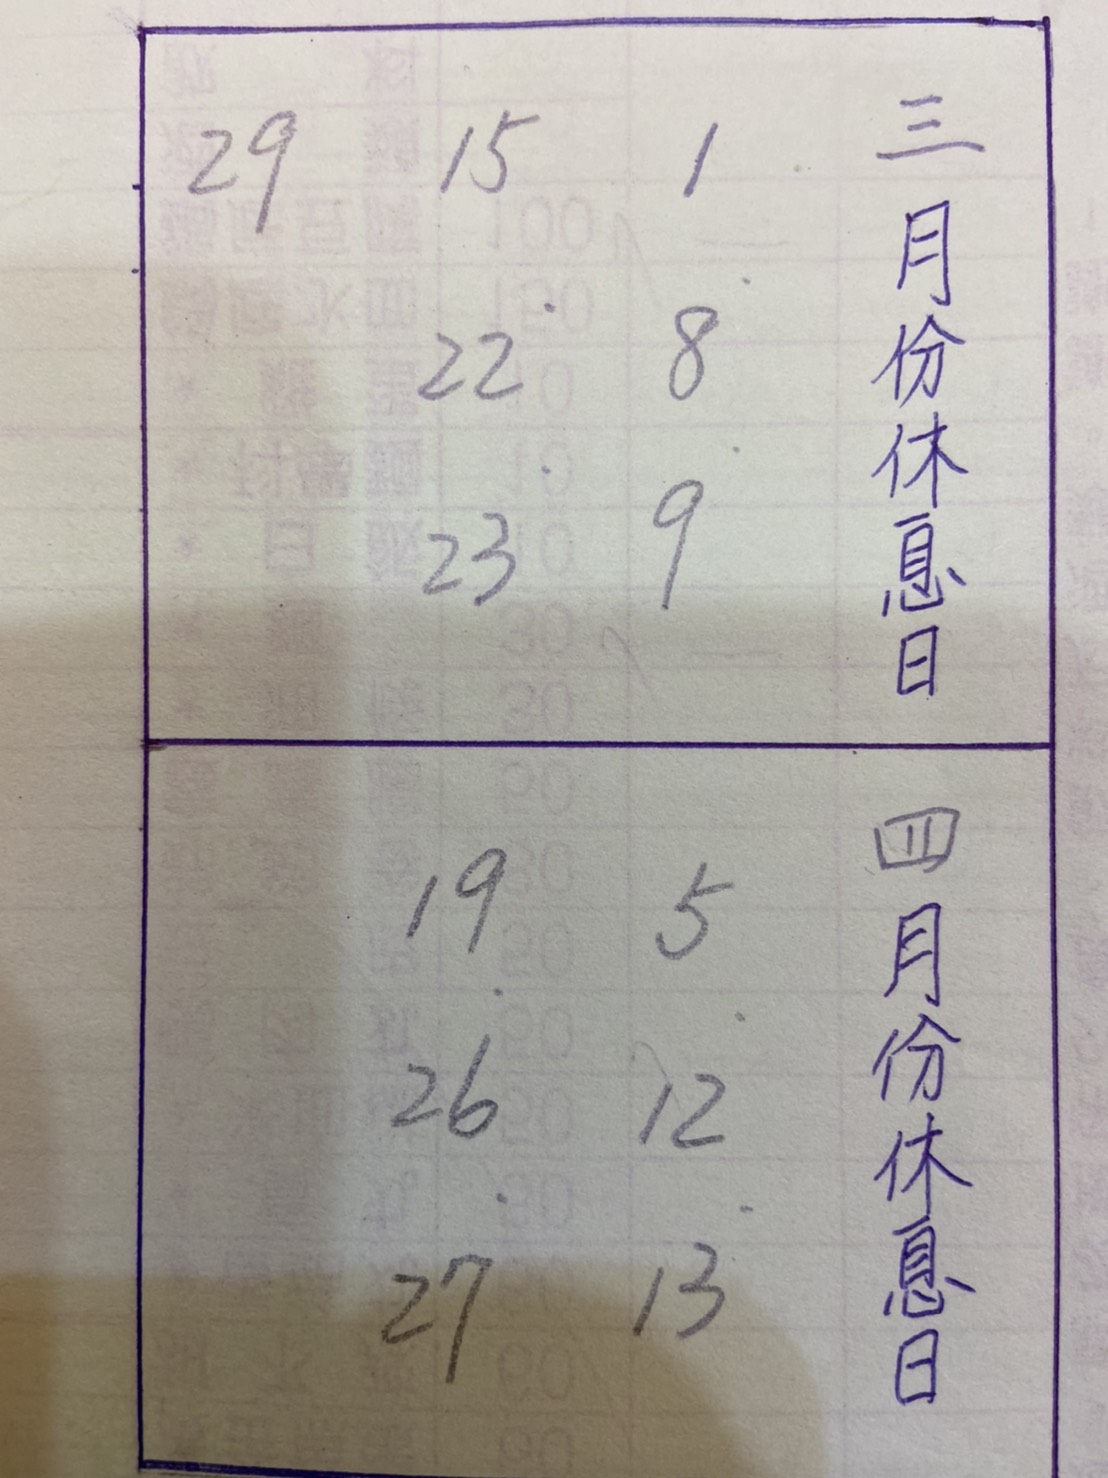 三月份休息日
1. 8. 9
15. 22. 23
29
四月份休息日
5. 12. 13
19. 26. 27